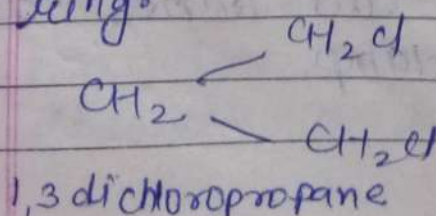 ring.
CH2Cl
CH2
CH2Cl
1,3 dichloropropane